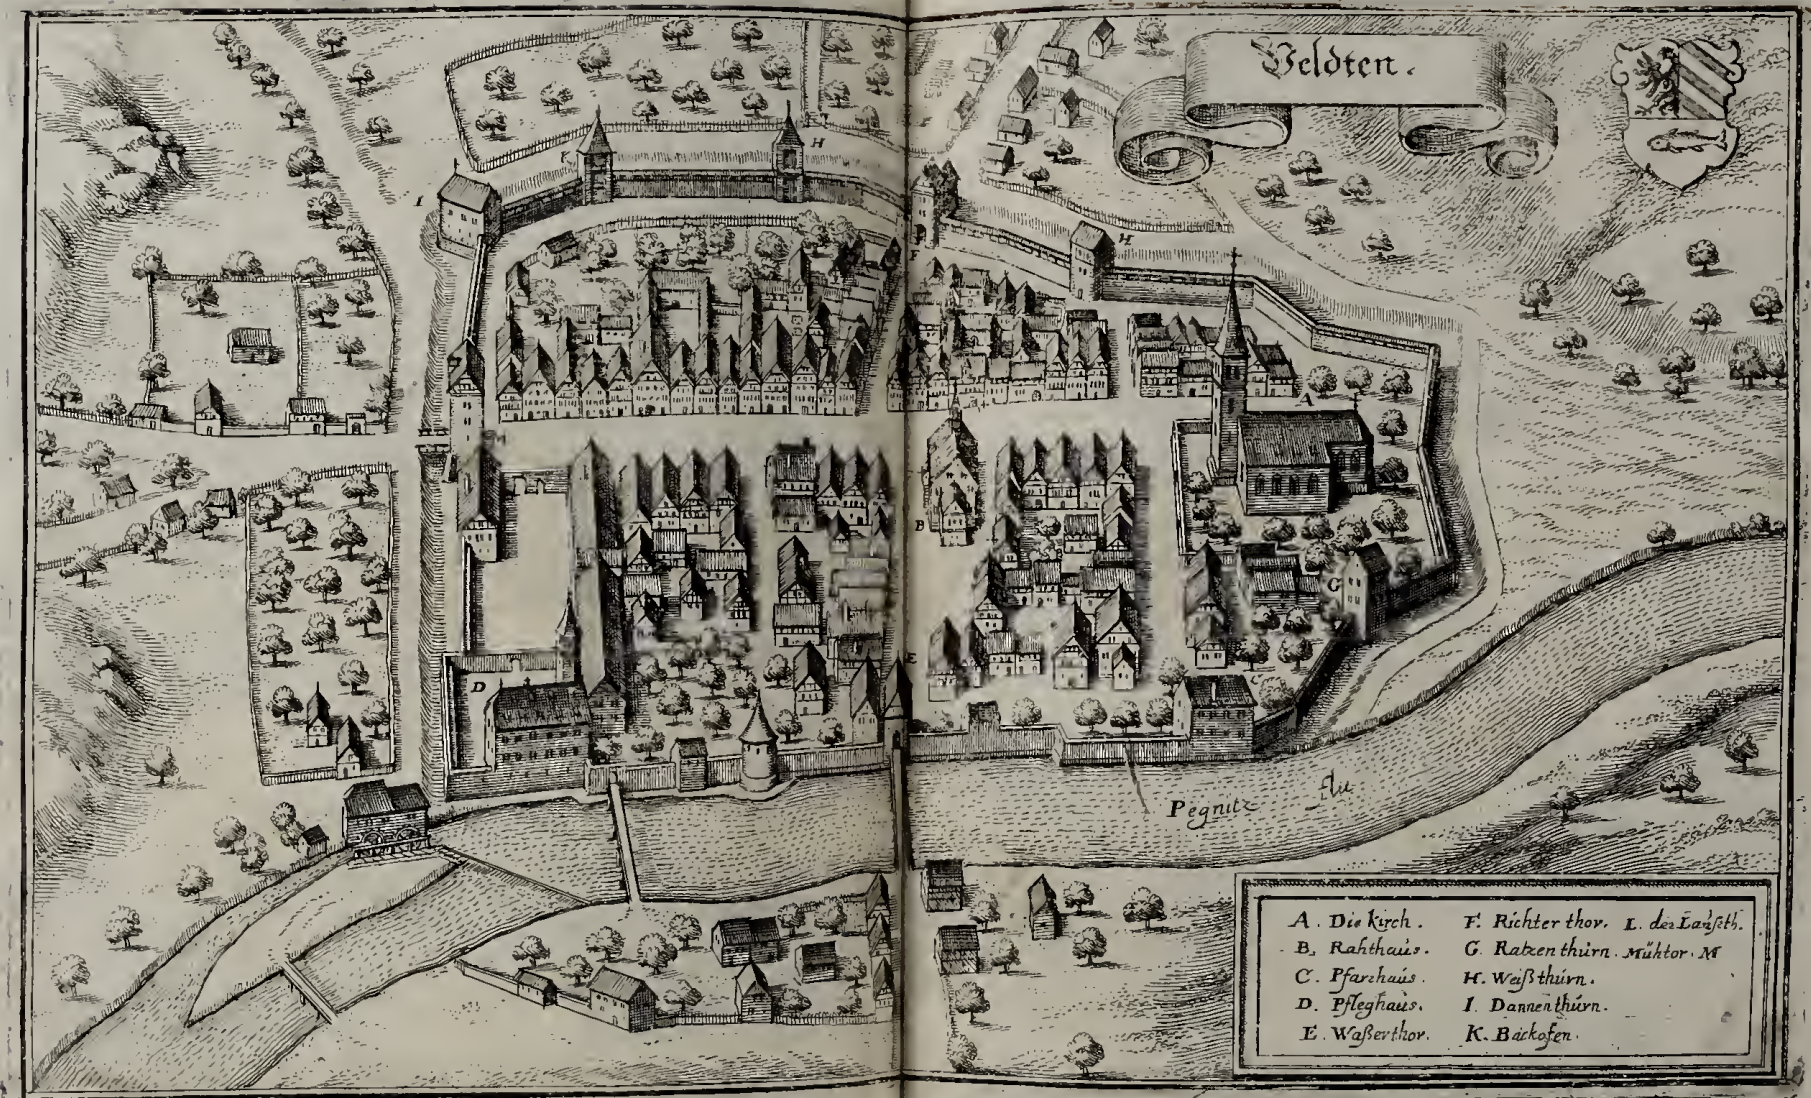 Veldten.
K
H
I
H
F
A
B
G
E
D
C
Pegnitz flu
A. Die kirch.
B. Rahthaus.
C. Pfarrhaus
D. Pfleghaus.
E. Waßerthor.
F. Richter thor.
G. Ratzen thurn.
H. Weißthurn.
I. Dannenthurn.
K. Backofen.
L. der
Mühtor. M